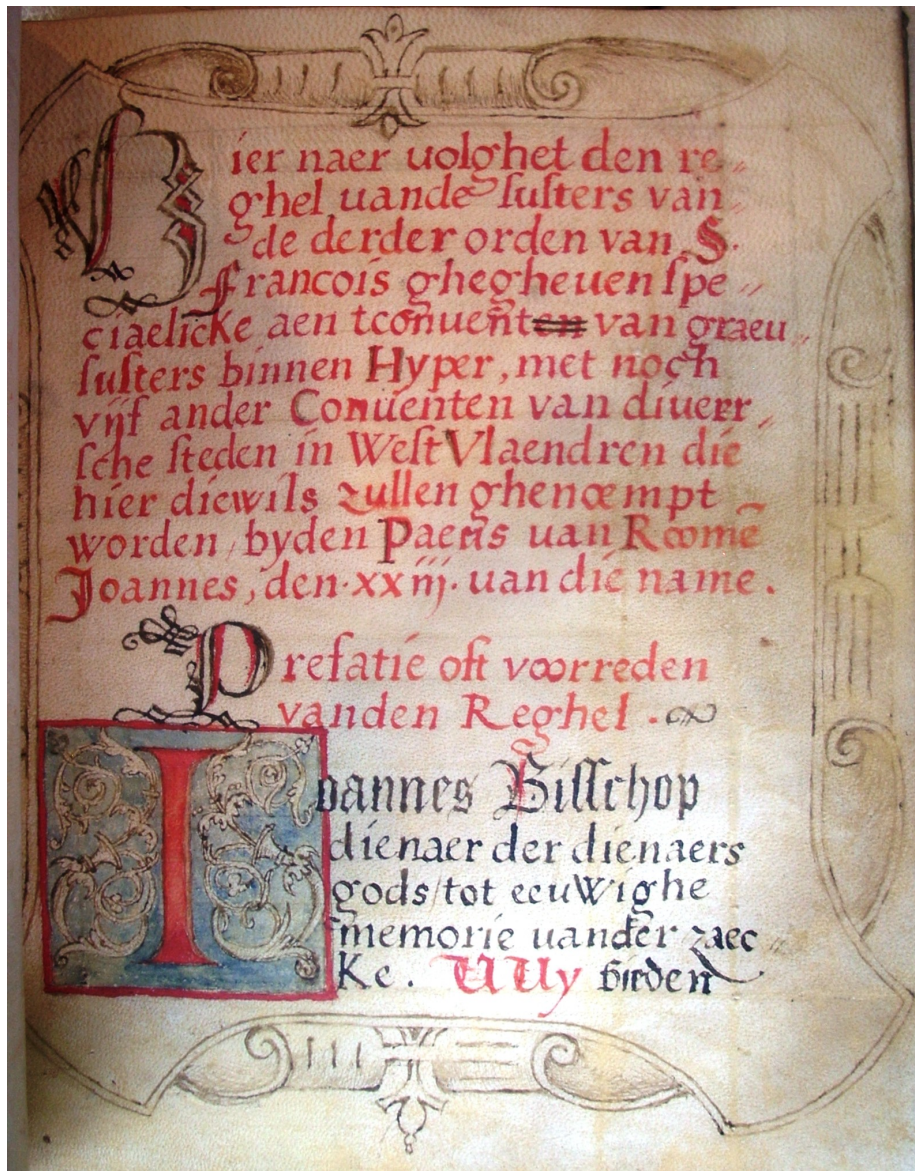 Hier naer uolghet den re„
ghel uande susters van„
de derder orden van S.
Francois ghegheuen spe„
ciaelicke aen tconuenten van graeu„
susters binnen Hyper, met noch
vijf ander Conuenten van diuerr„
sche steden in West Vlaendren die
hier dicwils zullen ghenoempt
worden/byden Paeus uan Roome
Joannes, den·xxiij· uan die name.
Prefatie oft voorreden
vanden Reghel.
Ioannes Bisschop
dienaer der dienaers
gods/tot eeuwighe
memorie uander zaec„
Ke. UUy bieden